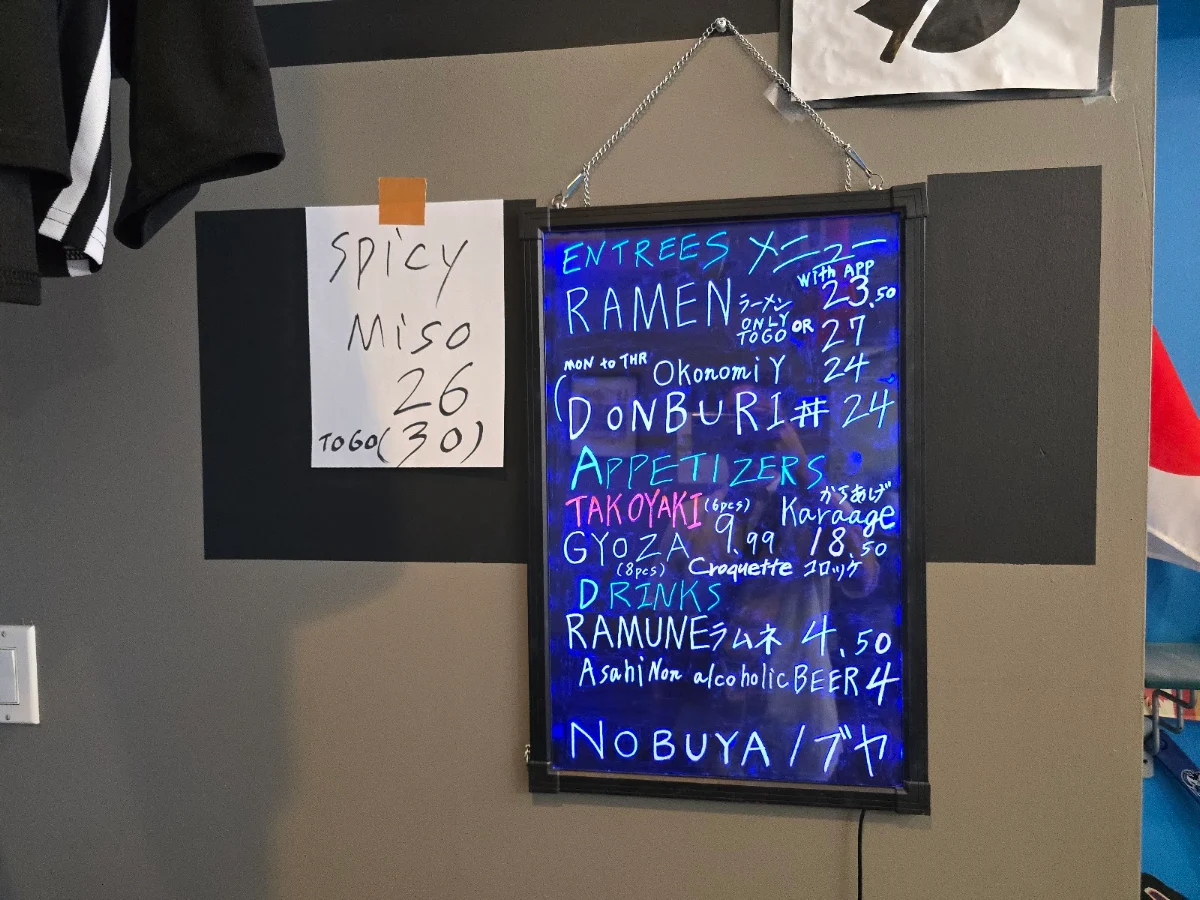 Spicy
Miso
26
TO GO (30)
ENTREES メニュー
with APP
RAMEN ラーメン 23.50
ONLY TOGO OR 27
MON to THR Okonomi Y 24
(DONBURI # 24
APPETIZERS
TAKOYAKI (6pcs) からあげ Karaage
GYOZA 9.99 18.50
(8pcs) Croquette コロッケ
DRINKS
RAMUNE ラムネ 4.50
Asahi Non alcoholic BEER 4
NOBUYA ノブヤ